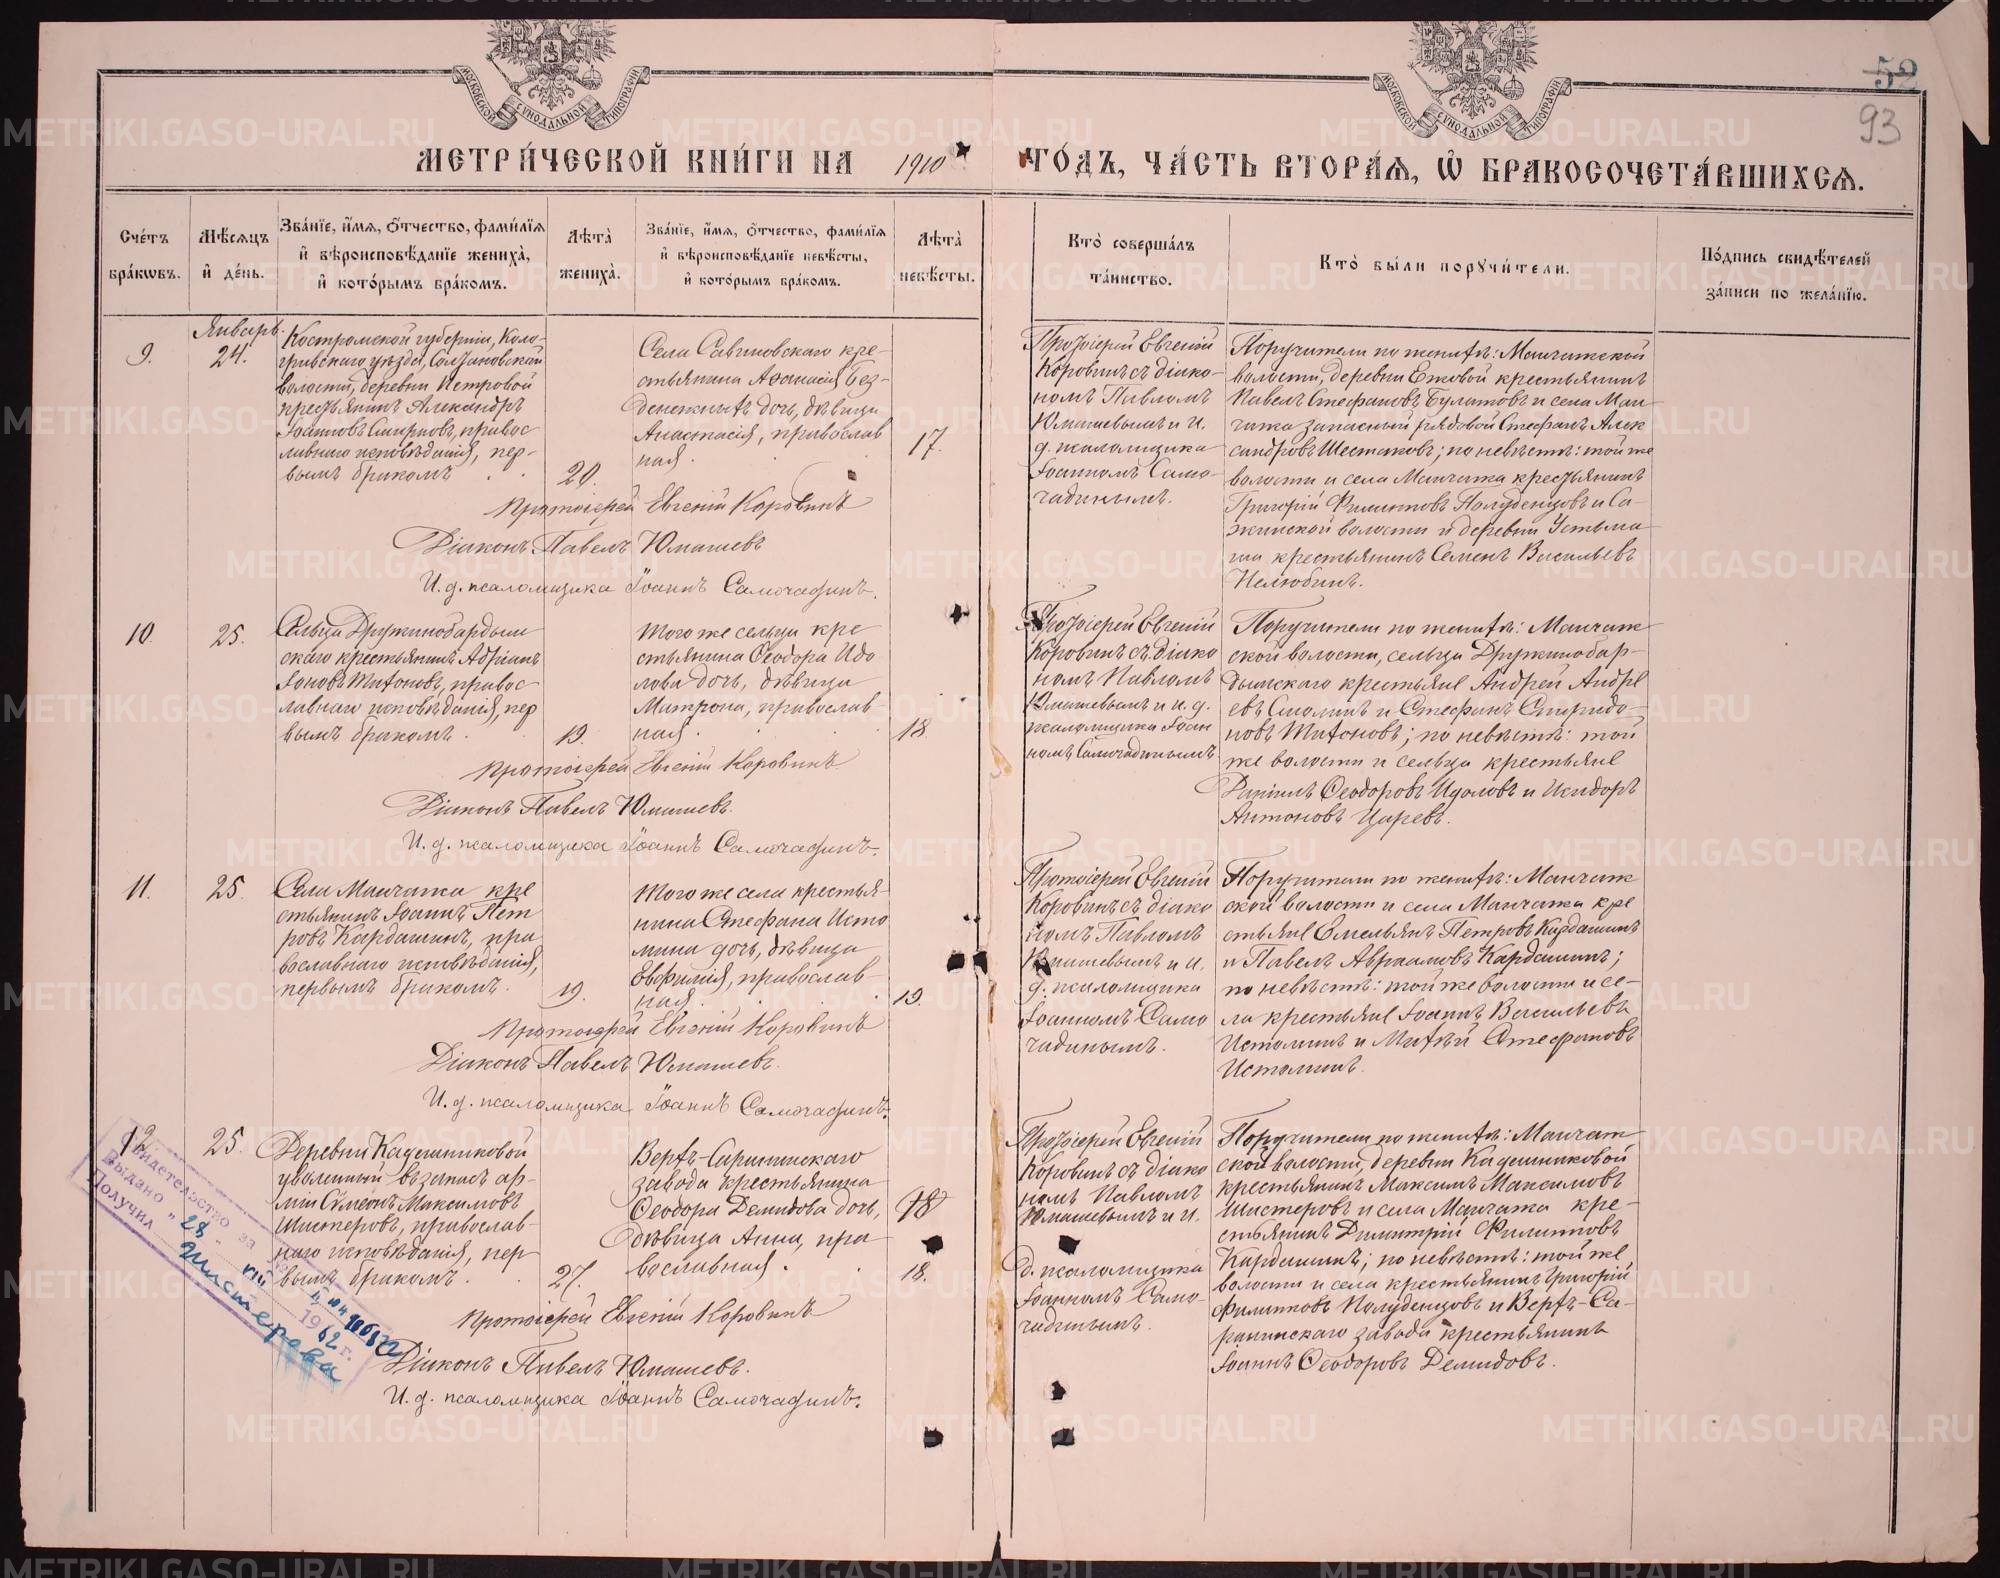 52
93
МЕТРИ́ЧЕСКОЙ КНИ́ГИ НА 1910 ГО́ДЪ, ЧА́СТЬ ВТОРА́Я, Ѽ БРАКОСОЧЕТА́ВШИХСЯ.
Сче́тъ бра́кωвъ.
Мѣ́сяцъ и҆ де́нь.
Зва́нїе, и҆́мя, ѻ҆́тчество, фами́лїя
и҆ вѣроисповѣ́данїе жениха̀,
и҆ кото́рымъ бра́комъ.
Лѣта̀ жениха̀.
Зва́нїе, и҆́мя, ѻ҆́тчество, фами́лїя
и҆ вѣроисповѣ́данїе невѣ́сты,
и҆ кото́рымъ бра́комъ.
Лѣта̀ невѣ́сты.
Кто̀ соверша́лъ та́инство.
Кто̀ бы́ли порꙋчи́тели.
По́дпись свидѣ́телей
за́писи по жела́нїю.
9.
Январь.
24.
Костромской губерніи, Коло-
гривскаго уѣзда,
волости, деревни Петровой
крестьянинъ Александръ
Іоанновъ Смирновъ, правос
лавнаго исповѣданія, пер-
вымъ бракомъ
20.
Села Савиновскаго кре-
стьянина Аѳанасія Без-
денежныхъ дочь, дѣвица
Анастасія, православ
ная.
17.
Протоіерей Евгеній
Коровинъ съ діако-
номъ Павломъ
Юмашевымъ и И.
д. псаломщика
Іоанномъ Само-
чадинымъ.
Поручители по женихѣ: Манчажской
волости, деревни Ековой крестьянинъ
Павелъ Стефановъ Булатовъ и села Ман-
чажа запасный рядовой Стефанъ Алек
сандровъ Шестаковъ; по невѣстѣ: той же
волости и села Манчажа крестьянинъ
Григорій Филипповъ Полуденцовъ и Са-
жинской волости и деревни Устьма-
ша крестьянинъ Семенъ Васильевъ
Нелюбинъ.
Протоіерей Евгеній Коровинъ
Діаконъ Павелъ Юмашевъ
И. д. псаломщика Іоаннъ Самочадинъ.
10.
25.
Сельца Дружинобардым
скаго крестьянинъ Адріанъ
Іоновъ Тихоновъ, правос-
лавнаго исповѣданія, пер
вымъ бракомъ.
19.
Того же сельца кре
стьянина Ѳеодора Идо
лова дочь, дѣвица
Матрона, православ-
ная.
18.
Протоіерей Евгеній
Коровинъ съ діако
номъ Павломъ
Юмашевымъ и и. д.
псаломщика Іоан
номъ Самочадинымъ
Поручители по женихѣ: Манчаж
ской волости, сельца Дружинобар-
дымскаго крестьяне Андрей Андре
евъ Смолинъ и Стефанъ Спиридо-
новъ Тихоновъ; по невѣстѣ: той
же волости и сельца крестьяне
Даніилъ Ѳеодоровъ Идоловъ и Исидоръ
Антоновъ Царевъ.
Протоіерей Евгеній Коровинъ
Діаконъ Павелъ Юмашевъ.
И. д. псаломщика Іоаннъ Самочадинъ.
11.
25.
Села Манчажа кре
стьянинъ Іоаннъ Пет
ровъ Кардашинъ, пра
вославнаго исповѣданія,
первымъ бракомъ.
19.
Того же села крестья-
нина Стефана Исто
мина дочь, дѣвица
Евфимія, православ-
ная.
19.
Протоіерей Евгеній
Коровинъ съ діако
номъ Павломъ
Юмашевымъ и И.
д. псаломщика
Іоанномъ Само
чадинымъ.
Поручители по женихѣ: Манчаж
ской волости и села Манчажа кре
стьяне Емельянъ Петровъ Кардашинъ
и Павелъ Авраамовъ Кардашинъ;
по невѣстѣ: той же волости и се-
ла крестьяне Іоаннъ Васильевъ
Истоминъ и Матѳій Стефановъ
Истоминъ.
Протоіерей Евгеній Коровинъ
Діаконъ Павелъ Юмашевъ.
И. д. псаломщика Іоаннъ Самочадинъ.
12.
25.
Деревни Кадешниковой
уволенный въ запасъ ар-
міи Максимовъ
Шистеровъ, православ-
наго исповѣданія, пер-
вымъ бракомъ.
27.
Верхъ-Саранинскаго
завода крестьянина
Ѳеодора Демидова дочь,
дѣвица Анна, пра
вославная.
18
18.
Протоіерей Евгеній
Коровинъ съ діако
номъ Павломъ
Юмашевымъ и И.
д. псаломщика
Іоанномъ Само-
чадинымъ.
Поручители по женихѣ: Манчаж
ской волости, деревни Кадешниковой
крестьянинъ Максимъ Максимовъ
Шистеровъ и села Манчажа кре-
стьянинъ Димитрій Филипповъ
Кардашинъ; по невѣстѣ: той же
волости и села крестьянинъ Григорій
Филипповъ Полуденцовъ и Верхъ-Са-
ранинскаго завода крестьянинъ
Іоаннъ Ѳеодоровъ Демидовъ.
Протоіерей Евгеній Коровинъ
Діаконъ Павелъ Юмашевъ.
И. д. псаломщика Іоаннъ Самочадинъ.
Свидетельство за №
Выдано " 28 " VIII 1962 г.
Получил Шистерова
METRIKI.GASO-URAL.RU